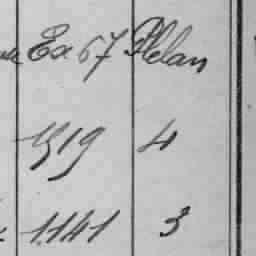 Ex 67 Plelan
1519 4
1141 3